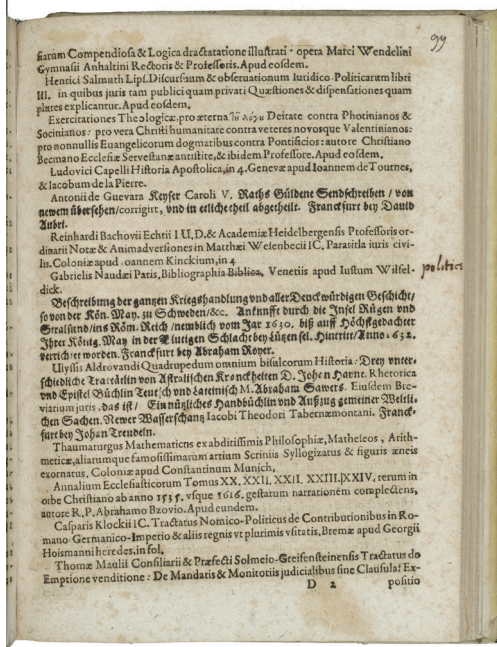 99
siarum Compendiosa & Logica dractatatione illustrati · opera Marci Wendelini
Gymnasii Anhaltini Rectoris & Professoris. Apud eosdem.
Henrici Salmuth Lips. Discursuum & observationum Iuridico-Politicarum libri
III. in quibus juris tam publici quam privati Quæstiones & dispensationes quam
plures explicantur. Apud eosdem.
Exercitationes Theologicæ, pro æterna τȣ λόγȣ Deitate contra Photinianos &
Socinianos: pro vera Christi humanitate contra veteres novosque Valentinianos:
pro nonnullis Euangelicorum dogmatibus contra Pontificios: autore Christiano
Becmano Ecclesiæ Servestanæ antistite, & ibidem Professore. Apud eosdem.
Ludovici Capelli Historia Apostolica, in 4. Genevæ apud Ioannem de Tournes,
& Iacobum de la Pierre.
Antonii de Guevara Keyser Caroli V. Raths Güldene Sendschreiben / von
newem übersehen / corrigirt, vnd in etliche theil abgetheilt. Franckfurt bey Dauid
Aubri.
Reinhardi Bachovii Echtii I U. D. & Academiæ Heidelbergensis Professoris or-
dinarii Notæ & Animadversiones in Matthæi Wesenbecii IC. Paratitla iuris civi-
lis. Coloniæ apud Ioannem Kinckium, in 4
Gabrielis Naudæi Paris. Bibliographia Biblica, Venetiis apud Iustum Wilfel-
politica
dick.
Beschreibung der gantzen Kriegshandlung vnd aller Denckwürdigen Geschicht /
so von der Kön. May. zu Schweden / &c. Ankunfft durch die Insel Rügen vnd
Stralsund / ins Röm. Reich / nemblich vom Jar 1630. biß auff Höchstgedachter
Ihrer Königl. May in der Blutigen Schlacht bey Lützen sel. Hintritt / Anno 1632.
verrichtet worden. Franckfurt bey Abraham Royer.
Ulyssis Aldrovandi Quadrupedum omnium bisulcorum Historia: Drey vnter-
schiedliche Tractätlin von Astralischen Kranckheiten D. Johan Harne. Rhetorica
vnd Epistel Büchlin Teutsch vnd Lateinisch M. Abraham Sawers. Eiusdem Bre-
viarium juris. das ist / Ein nützliches Handbüchlin vnd Außzug gemeiner Weltli-
chen Sachen. Newer Wasserschantz Iacobi Theodori Tabernæmontani. Franck-
furt bey Johan Treudeln.
Thaumaturgus Mathematicus ex abditissimis Philosophiæ, Matheseos, Arith-
meticæ, aliarumque famosissimarum artium Scriniis Syllogizatus & figuris æneis
exornatus, Coloniæ apud Constantinum Munich,
Annalium Ecclesiasticorum Tomus XX. XXII. XXII. XXIII. XXIV. rerum in
orbe Christiano ab anno 1535. vsque 1616. gestarum narrationem complectens,
autore R. P. Abrahamo Bzovio. Apud eundem.
Casparis Klockii IC. Tractatus Nomico-Politicus de Contributionibus in Ro-
mano-Germanico-Imperio & aliis regnis vt plurimis vsitatis. Bremæ apud Georgii
Hoismanni heredes, in fol.
Thomæ Maulii Consiliarii & Præfecti Solmeio-Greifensteinensis Tractatus de
Emptione venditione: De Mandatis & Monitoriis judicialibus sine Clausula: Ex-
D 2 positio